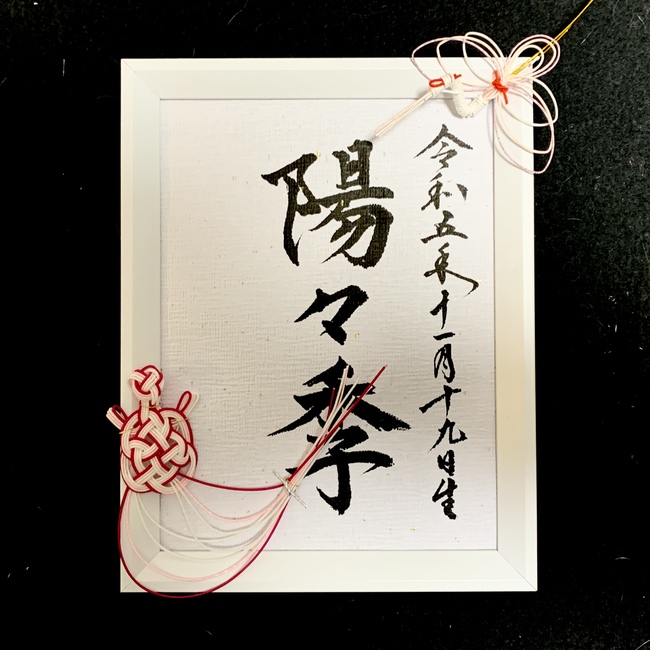 令和五年十一月十九日生
陽々季